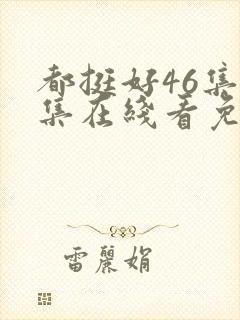 都挺好46集
集在线看免
雷丽娟